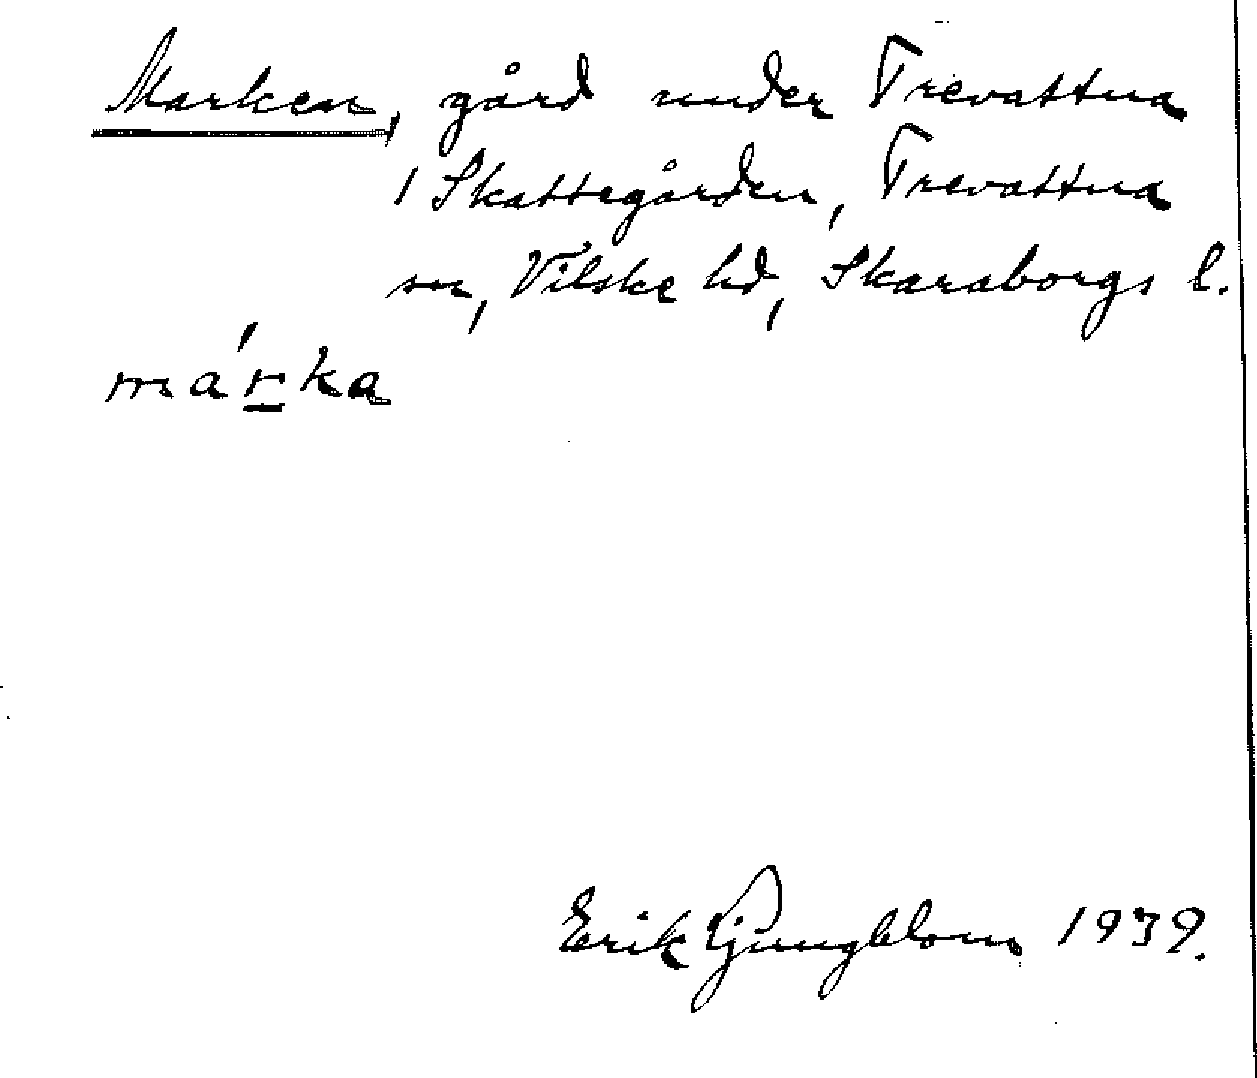 Marken, gård under Trevattna
1 Skattegården, Trevattna
sn, Vilske hd, Skaraborgs l.
márka
Erik Ljungblom 1939.